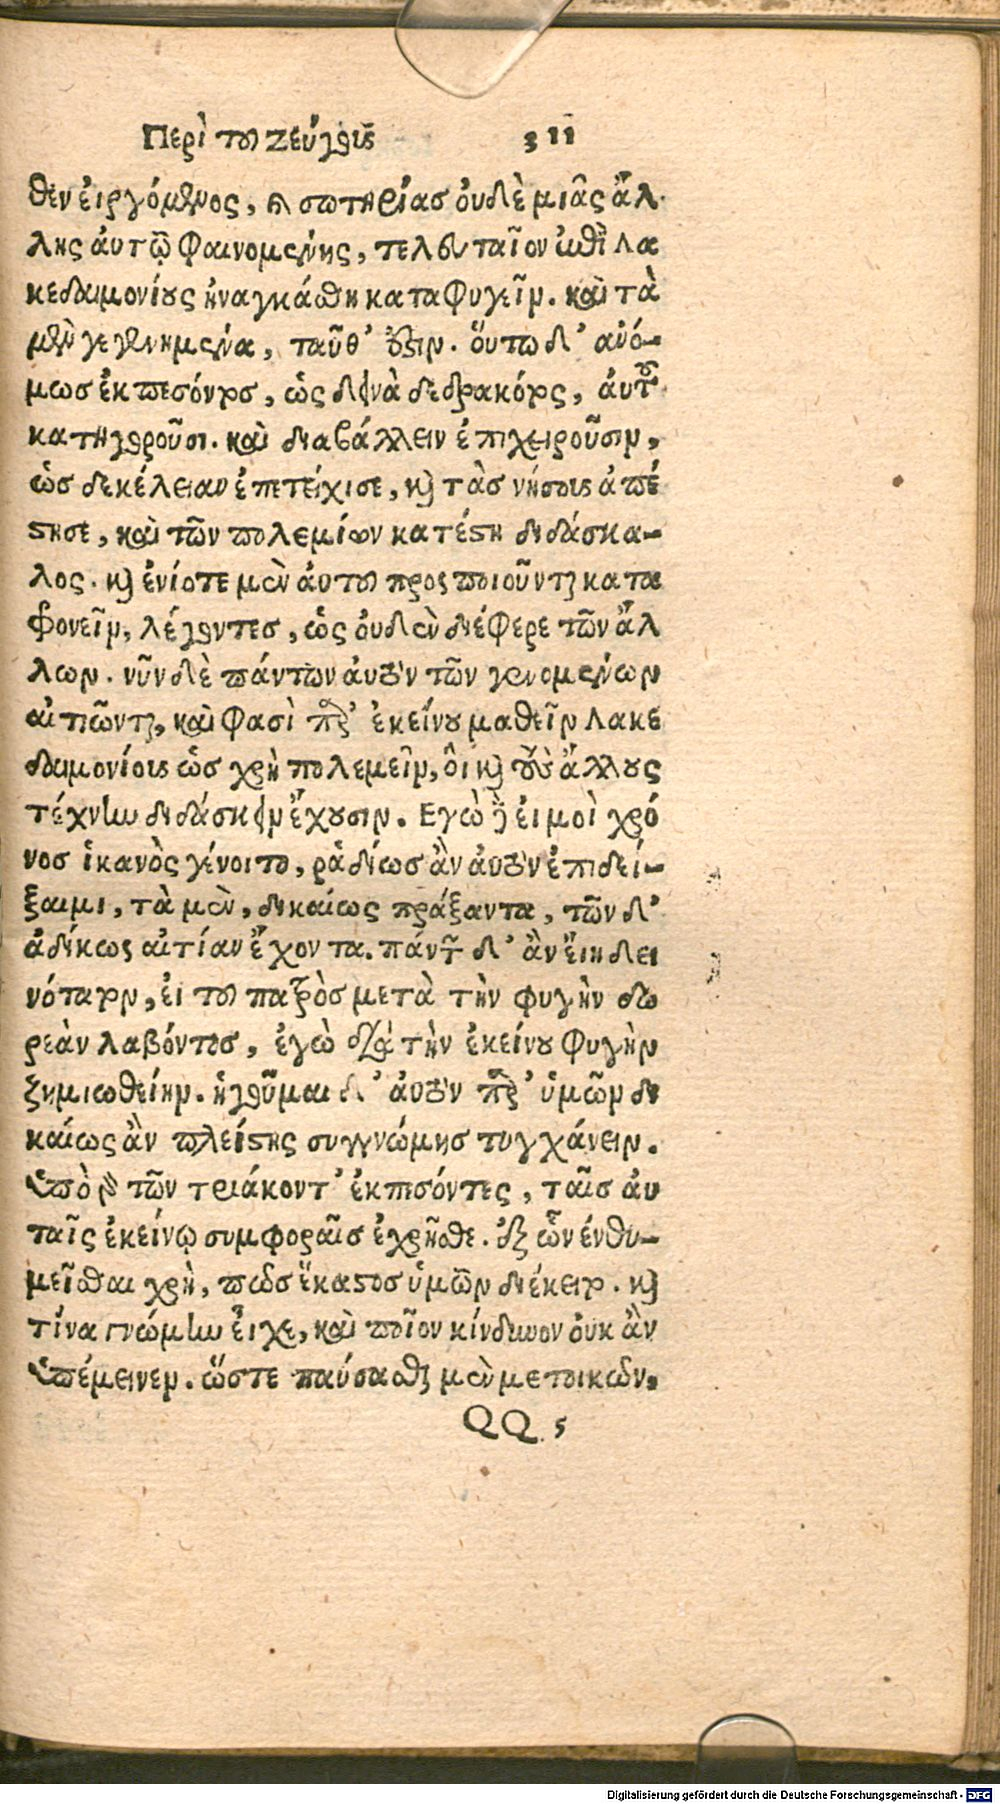 Περὶ τοῦ Ζεύγους 311
θεν εἰργόμενος, καὶ σωτηρίας οὐδὲ μιᾶς ἄλ-
λης αὐτῷ φαινομένης, τελευταῖον ἐπὶ Λα
κεδαιμονίους ἠναγκάσθη καταφυγεῖν. καὶ τὰ
μὲν γεγενημένα, ταῦθ’ ἐστιν. οὕτω δ’ ἀνό-
μως ἐκπεσόντος, ὡς δεινὰ δεδρακότος, αὐτοῦ
κατηγοροῦσι. καὶ διαβάλλειν ἐπιχειροῦσιν,
ὡς δεκέλειαν ἐπετείχισε, καὶ τὰς νήσους ἀπέ
στησε, καὶ τῶν πολεμίων κατέστη διδάσκα-
λος. καὶ ἐνίοτε μὲν αὐτοῦ προςποιοῦνται κατα
φονεῖν, λέγοντες, ὡς οὐδὲν διέφερε τῶν ἄλ
λων. νῦν δὲ πάντων αὐτὸν τῶν γενομένων
αἰτιῶνται, καὶ φασὶ παρ’ ἐκείνου μαθεῖν Λακε
δαιμονίους ὡς χρὴ πολεμεῖν, οἳ καὶ τοὺς ἄλλους
τέχνην διδάσκειν ἔχουσιν. Εγὼ δ’ εἰ μοὶ χρό
νος ἱκανὸς γένοιτο, ῥᾳδίως ἂν αὐτὸν ἐπιδεί-
ξαιμι, τὰ μὲν, δικαίως πράξαντα, τῶν δ’
ἀδίκως αἰτίαν ἔχοντα. πάντων δ’ ἂν εἴη δει
νότατον, εἰ τοῦ πατρὸς μετὰ τὴν φυγὴν δω
ρεὰν λαβόντος, ἐγὼ διὰ τὴν ἐκείνου φυγὴν
ζημιωθείην. ἡγοῦμαι δ’ αὐτὸν παρ’ ὑμῶν δι
καίως ἂν πλείστης συγγνώμης τυγχάνειν.
ὑπὸ γὰρ τῶν τριάκοντ’ ἐκπεσόντες, ταῖς αὐ
ταῖς ἐκείνῳ συμφοραῖς ἐχρῆσθε. ἐξ ὧν ἐνθυ-
μεῖσθαι χρὴ, πῶς ἕκαστος ὑμῶν διέκειτο. καὶ
τίνα γνώμην εἶχε, καὶ ποῖον κίνδυνον οὐκ ἂν
ὑπέμεινεν. ὥστε παύσασθαι μὲν μετοικῶν.
QQ 5
Digitalisierung gefördert durch die Deutsche Forschungsgemeinschaft - DFG